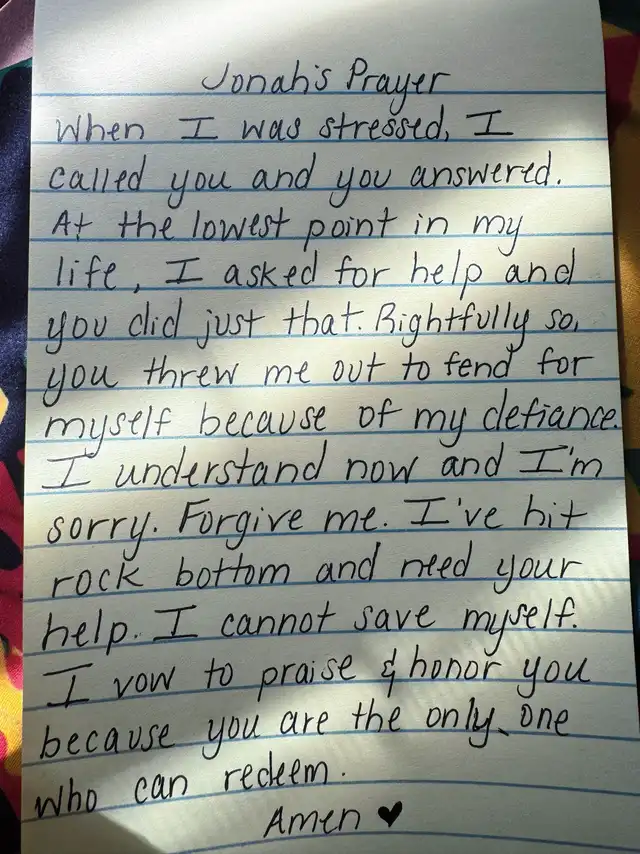 Jonah's Prayer
When I was stressed, I
called you and you answered.
At the lowest point in my
life, I asked for help and
you did just that. Rightfully so,
you threw me out to fend for
myself because of my defiance.
I understand now and I'm
sorry. Forgive me. I've hit
rock bottom and need your
help. I cannot save myself.
I vow to praise & honor you
because you are the only one
who can redeem.
Amen ♥